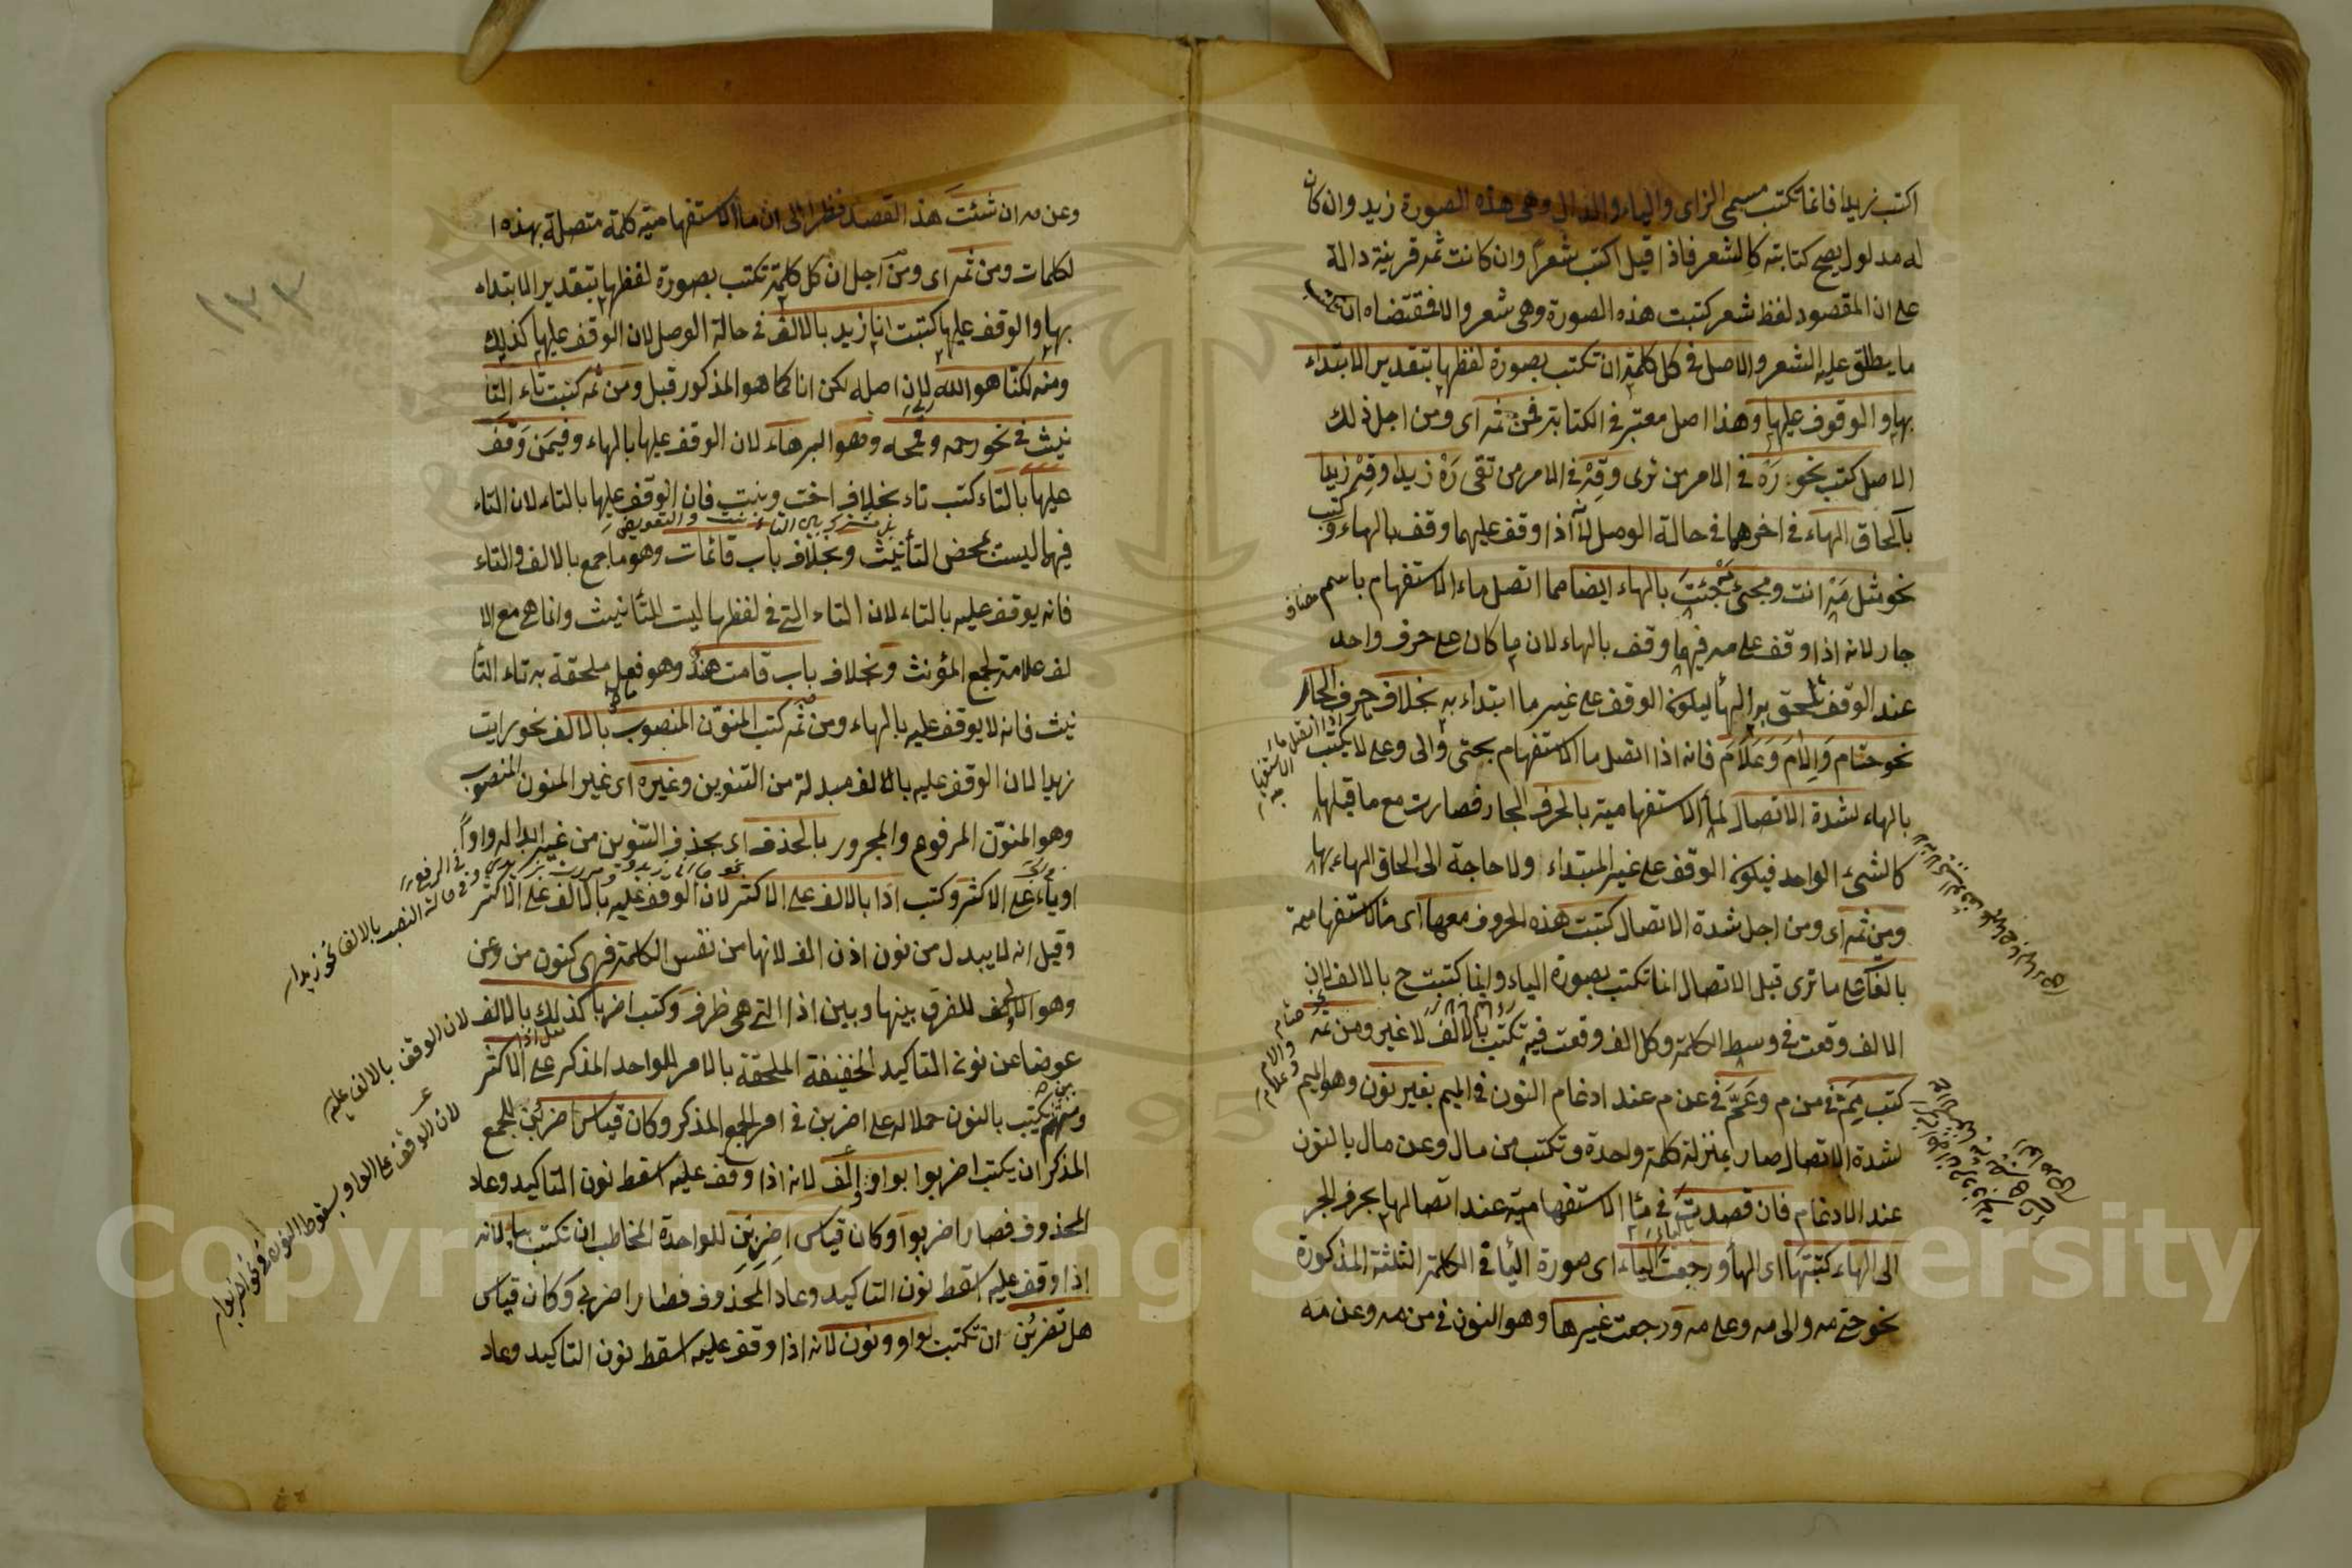 اكتب زيدا فانما تكتب مسمى الزاى والياء والدال وهى هذه الصورة زيد وان كان
له مدلول يصح كتابته كالشعر فاذا قيل اكتب شعرا وان كانت ثمه قرينة دالة
على ان المقصود لفظ شعر كتبت هذه الصورة وهى شعر والا فمقتضاه ان تكتب
ما يطلق عليه الشعر والاصل فى كل كلمة ان تكتب بصورة لفظها بتقدير الابتداء
بها والوقوف عليها وهذا اصل معتبر فى الكتابة فمن ثمه اى ومن اجل ذلك
الاصل كتب نحو رَهْ فى الامر من ترى وقِهْ فى الامر من تقى رَهْ زيدا وقِهْ زيدا
بالحاق الهاء فى اخرهما فى حالة الوصل لانه اذا وقف عليهما وقف بالهاء وكتب
نحو مثل مَهْ انت ومجئ مَهْ جئتَ بالهاء ايضا مما اتصل ماء الاستفهام باسم مضاف
جار لانه اذا وقف على مه فيهما وقف بالهاء لان ما كان على حرف واحد
عند الوقف تلحق به الهاء ليكون الوقف على غير ما ابتداء به بخلاف حرف الجار
نحو حتام وَاِلامَ وَعَلامَ فانه اذا اتصل ما الاستفهام بحتى والى وعلى لا يكتب
بالهاء لشدة الاتصال لما الاستفهامية بالحرف الجار فصارت مع ما قبلها
كالشىء الواحد فيكون الوقف على غير المبتداء ولا حاجة الى الحاق الهاء بها
ومن ثمه اى ومن اجل شدة الاتصال كتبت هذه الحروف معها اى ما الاستفهامية
بالفات على ما ترى قبل الاتصال انما تكتب بصورة الياء وانما كتبت ح بالالف لان
الالف وقعت فى وسط الكلمة وكل الف وقعت فيه تكتب بالالف لا غير ومن ثمه
كتب مِمَّ فى من م وعَمَّ فى عن م عند ادغام النون فى الميم بغير نون وهو الميم
لشدة الاتصال صار بمنزلة كلمة واحدة وتكتب من مال وعن مال بالنون
عند الادغام فان قصدت فى ما الاستفهامية عند اتصالها بحرف الجر
الى الهاء كتبتها اى الهاء ورجعت الياء اى صورة الياء فى الكلمة الثلثة المذكورة
نحو حتى مه والى مه وعلى مه ورجعت غيرها وهو النون فى من مه وعن مه
وعن مه ان شئت هذا القصد فنظرا الى ان ما الاستفهامية كلمة متصلة بهذه ا
لكلمات ومن ثمه اى ومن اجل ان كل كلمة تكتب بصورة لفظها بتقدير الابتداء
بها والوقف عليها كتبت انا زيد بالالف فى حالة الوصل لان الوقف عليها كذلك
ومنه لكنا هو الله لان اصله لكن انا كما هو المذكور قبل ومن ثمه كتبت تاء التا
نيث فى نحو رحمه وقمحه وهو البر هاء لان الوقف عليها بالهاء وفيمَن وَقَفَ
عليها بالتاء كتب تاء بخلاف اخت وبنت فان الوقف عليها بالتاء لان التاء
فيهما ليست لمحض التأنيث وبخلاف باب قائمات وهو ما جمع بالالف والتاء
فانه يوقف عليه بالتاء لان التاء التى فى لفظها ليست للتأنيث وانما هى مع الا
لف علامة لجمع المؤنث وبخلاف باب قامت هندٌ وهو فعل ملحقة به تاء التأ
نيث فانه لا يوقف عليه بالهاء ومن ثمه كتب المنوّن المنصوب بالالف نحو رايت
زيدا لان الوقف عليه بالالف مبدلة من التنوين وغيره اى غير المنون المنصوب
وهو المنوّن المرفوع والمجرور بالحذف اى بحذف التنوين من غير ابداله واواً
او ياء على الاكثر وكتب اذا بالالف على الاكثر لان الوقف عليه بالالف على الاكثر
وقيل انه لا يبدل من نون اذن الف لانها من نفس الكلمة فهى كنون من وعن
وهو للفرق بينها وبين اذا التى هى ظرف وكتب اضربا كذلك بالالف
عوضا عن نون التاكيد الخفيفة الملحقة بالامر للواحد المذكر على الاكثر
ومنهم يكتب بالنون حملا له على اضربن فى امر الجمع المذكر وكان قياس اضربُن للجمع
المذكر ان يكتب اضربوا بواو والف لانه اذا وقف عليه اسقط نون التاكيد وعاد
المحذوف فصار اضربوا وكان قياس اضرِبِن للواحدة المخاطب ان تكتب بياء لانه
اذا وقف عليه اسقط نون التاكيد وعاد المحذوف فصار اضربى وكان قياس
هل تضربُن ان تكتب بواو ونون لانه اذا وقف عليه اسقط نون التاكيد وعاد
وفى حالة النصب بالالف نحو زيدا
لان الوقف بالالف عليه
لان الوقف على الواو بسقوط النون
١٣٣
Copyright © King Saud University